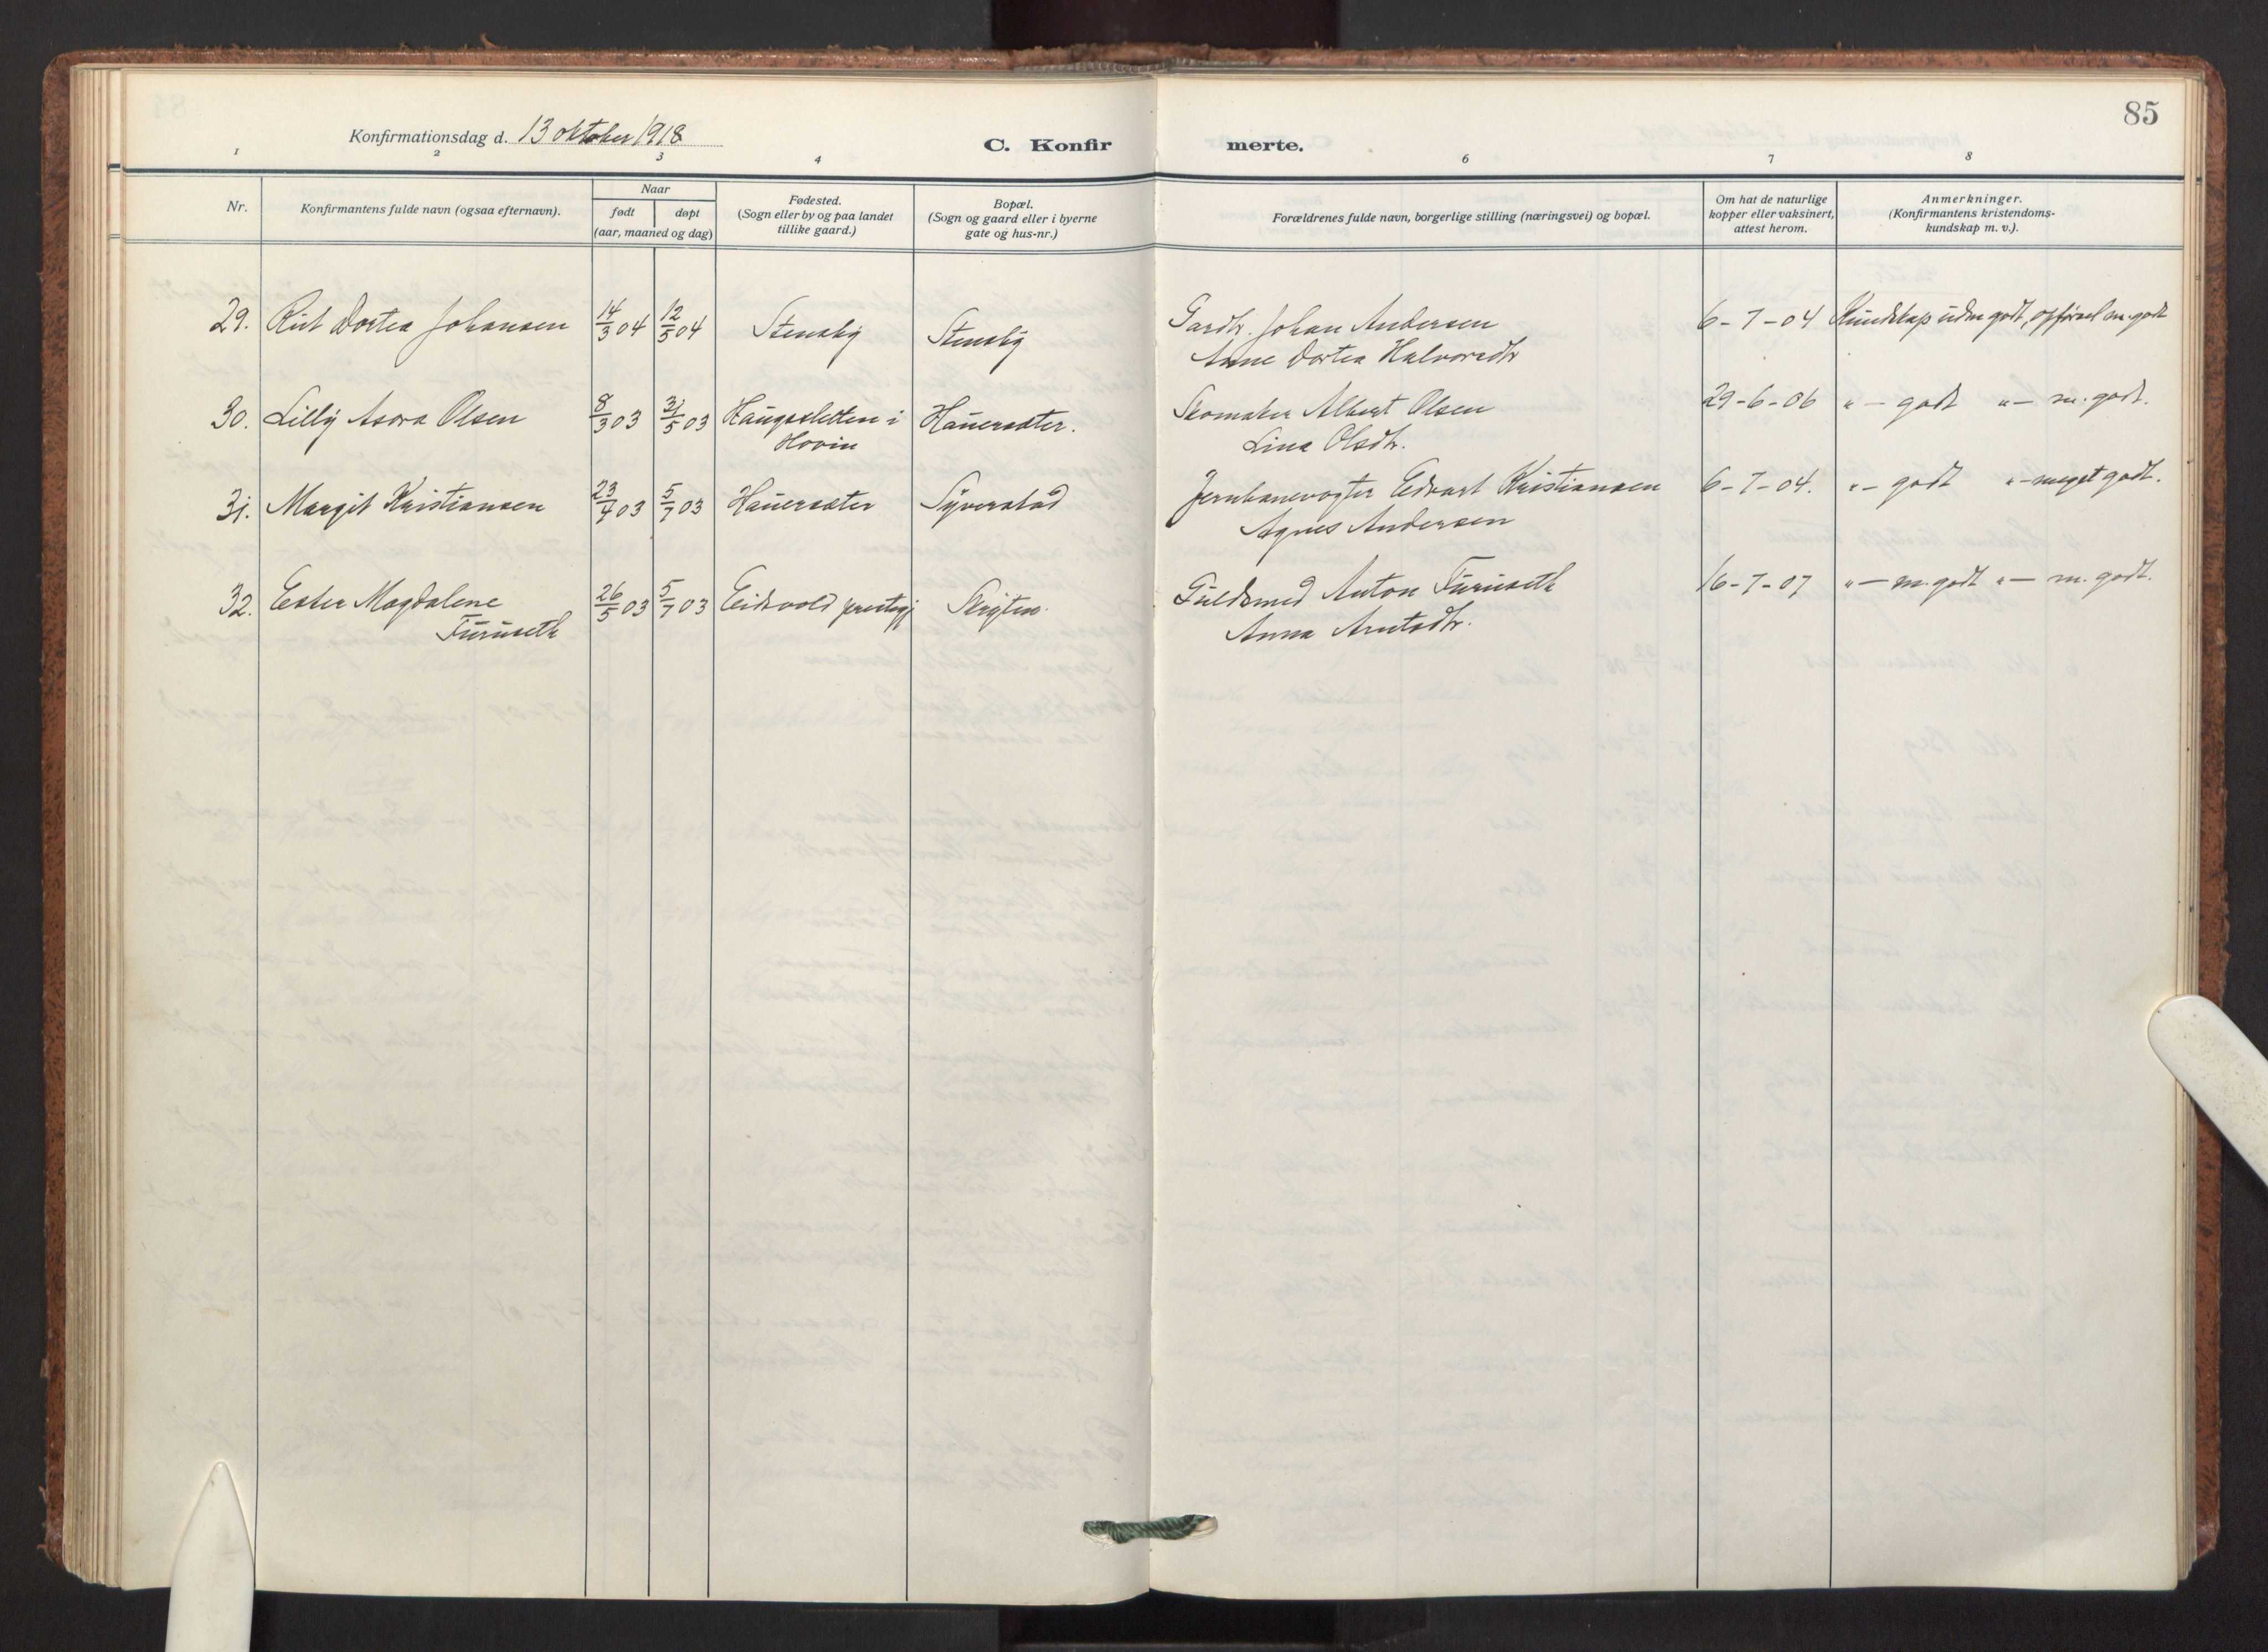 85
Konfirmationsdag d. 13 oktober 1918
C. Konfirmerte.
1 2 3 4 6 7 8
Nr.
Konfirmantens fulde navn (ogsaa efternavn).
Naar
født døpt
(aar, maaned og dag)
Fødested.
(Sogn eller by og paa landet
tillike gaard.)
Bopæl.
(Sogn og gaard eller i byerne
gate og hus-nr.)
Forældrenes fulde navn, borgerlige stilling (næringsvei) og bopæl.
Om hat de naturlige
kopper eller vaksinert,
attest herom.
Anmerkninger.
(Konfirmantens kristendoms-
kundskap m. v.).
29. Rut Dortea Johansen 14/3 04 12/5 04 Stensby Stensby Gardbr. Johan Andersen 6-7-04 Kundskap udm godt, opførsel m. godt
Anne Dortea Halvorsdtr
30. Lilly Asora Olsen 8/3 03 31/5 03 Haugssletten i Hauersæter. Skomaker Albert Olsen 29-6-06 "— godt "— m. godt.
Hovin Lina Olsdtr.
31. Margit Kristiansen 23/4 03 5/7 03 Hauersæter Syverstad Jernbanevogter Edvart Kristiansen 6-7-04. "— godt "— meget godt.
Agnes Andersen
32. Ester Magdalene 26/5 03 5/7 03 Eidsvold prestegj Guldsmed Anton Furuseth 16-7-07 "— m. godt "— m. godt.
Furuseth Anna Arntsdtr.